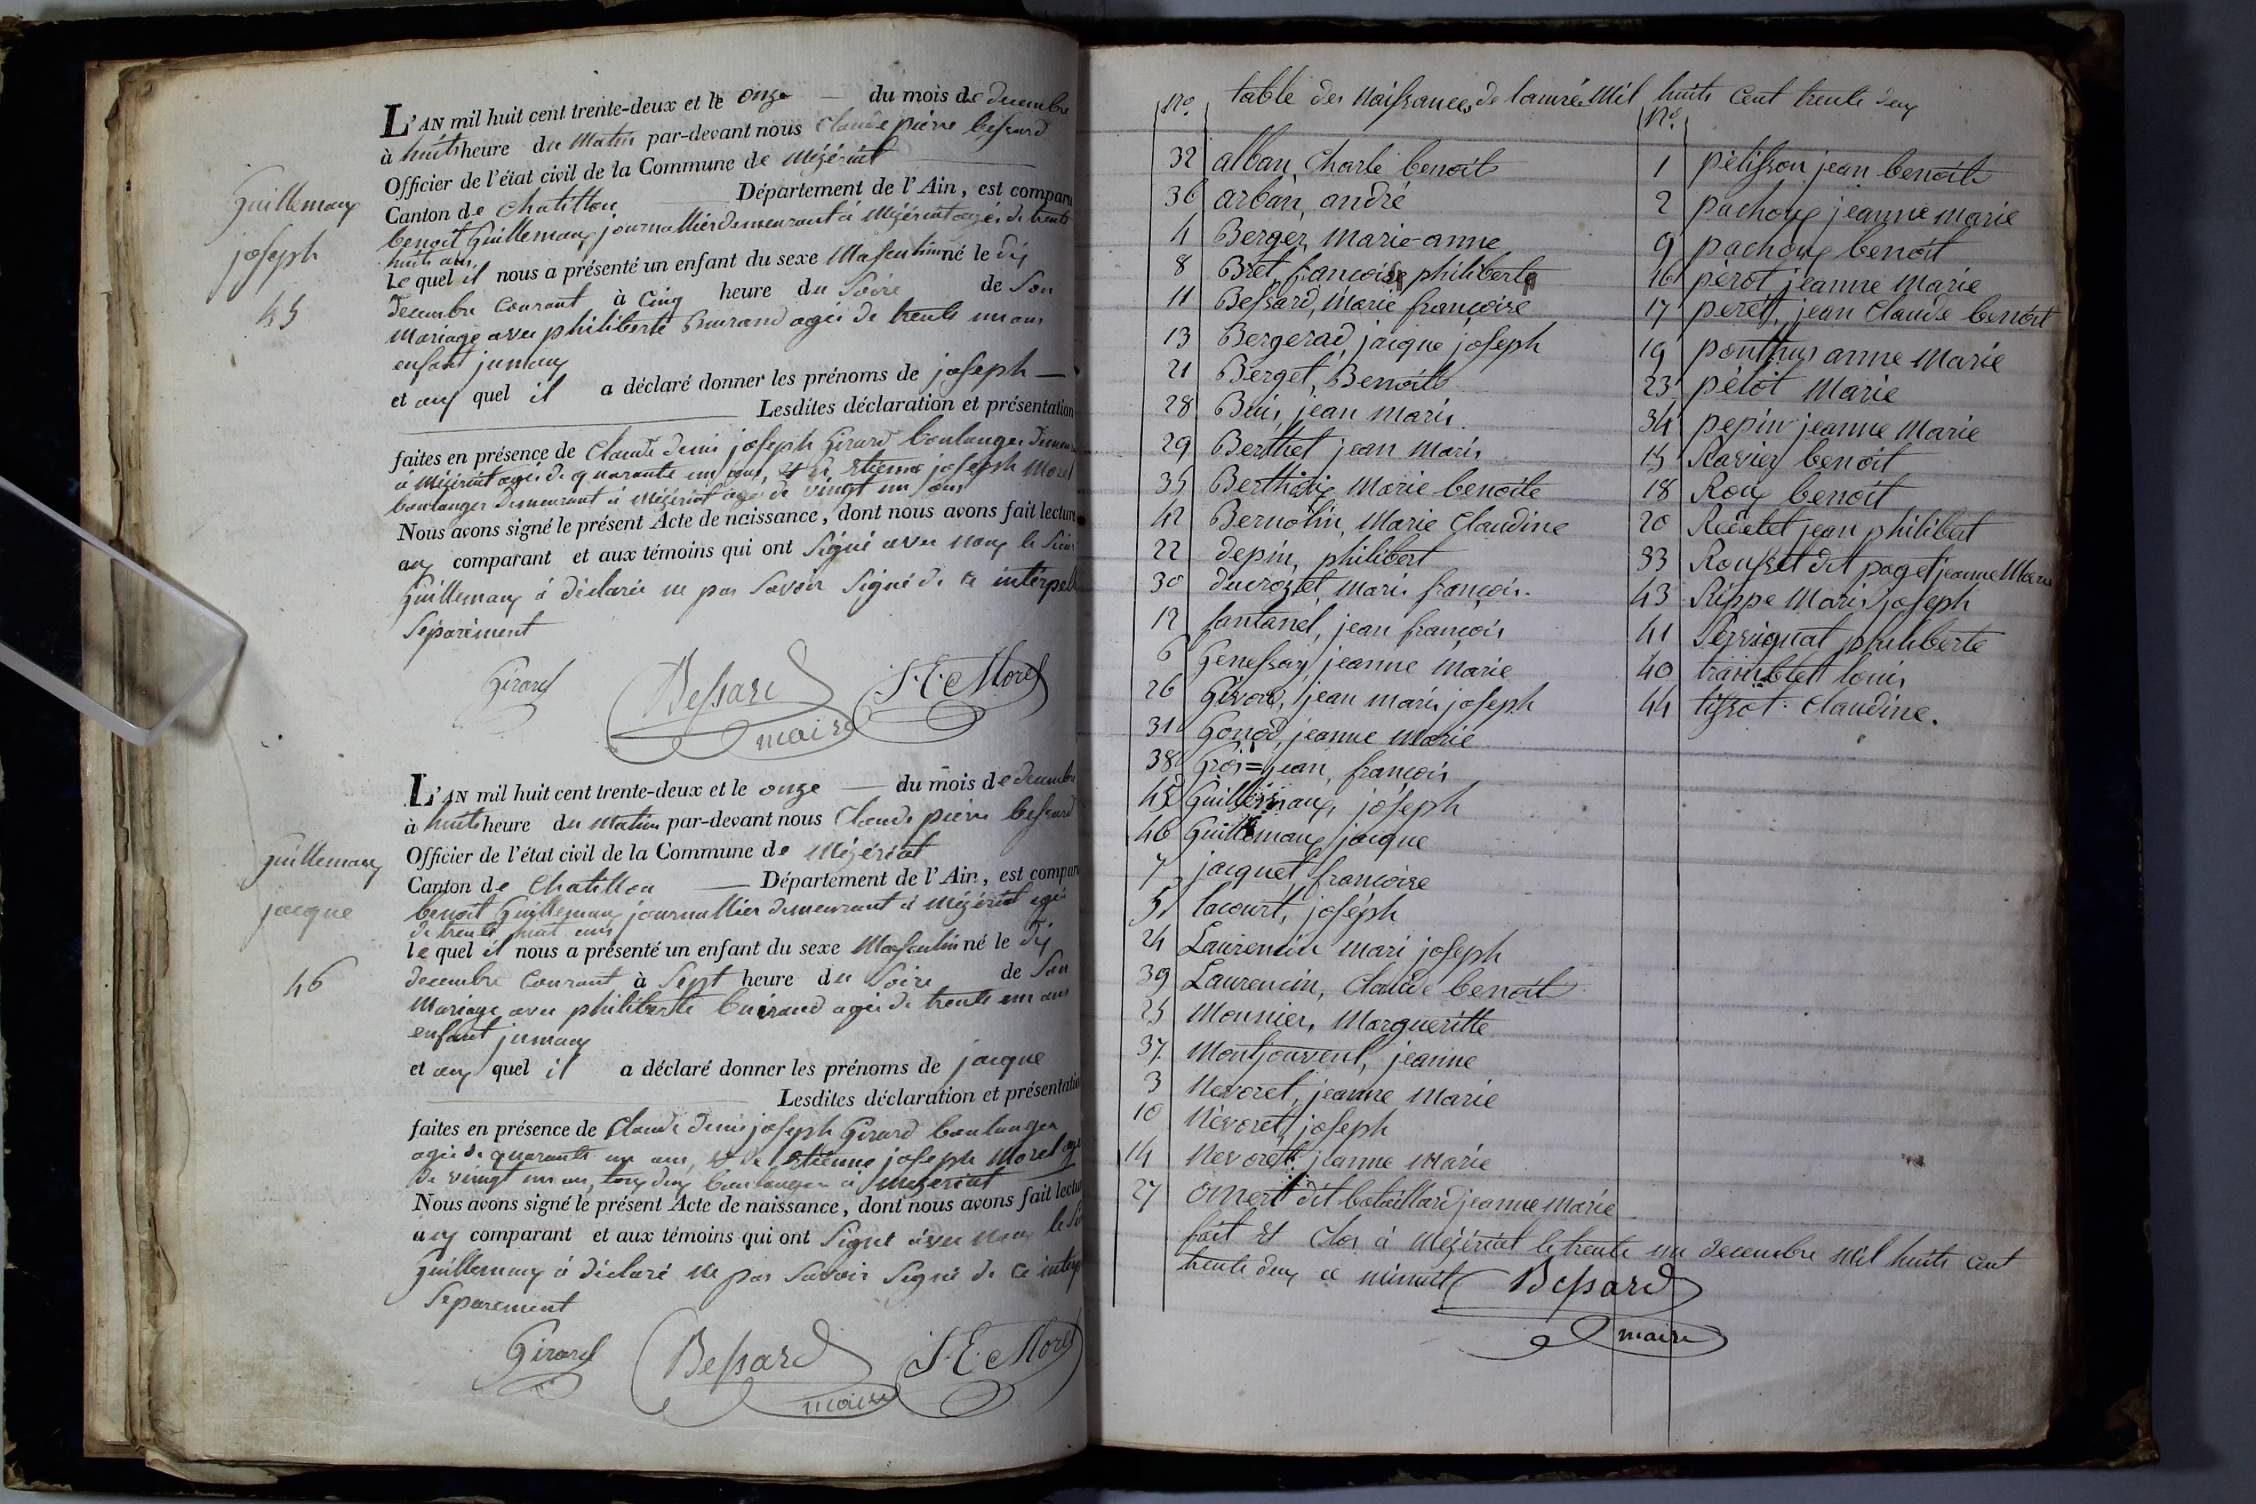 L'AN mil huit cent trente-deux et le onze — du mois de decembre
à huits heure du Matin par-devant nous Claude pierre bessard
Officier de l'état civil de la Commune de Mézériat
Canton de Chatillon Département de l'Ain, est comparu
benoit Guillemaux journallier demeurant à Mézériat agés de trente
huits ans,
Le quel il nous a présenté un enfant du sexe Masculin né le dix
decembre courant à Cinq heure du Soire de Son
Mariage avec philiberte Buirand agée de trente un ans
enfant jumaux
et aux quel il a déclaré donner les prénoms de joseph —
Lesdites déclaration et présentation
faites en présence de Claude denis joseph Girard boulanger
à Mézériat agés de quarante un ans, et de Etienne joseph Morel
boulanger demeurant à Mézériat agés de vingt un ans
Nous avons signé le présent Acte de naissance, dont nous avons fait lecture
aux comparant et aux témoins qui ont Signé avec nous le Sieur
Guillemaux à déclarée ne pas Savoir Signé de ce interpellé
Séparément
Girard Bessard maire J. E. Morel
Guillemaux
joseph
45
L'AN mil huit cent trente-deux et le onze — du mois de decembre
à huits heure du Matin par-devant nous Claude pierre bessard
Officier de l'état civil de la Commune de Mézériat
Canton de Chatillon — Département de l'Ain, est comparu
benoit Guillemaux journallier demeurant à Mézériat agés
de trente huit ans
le quel il nous a présenté un enfant du sexe Masculin né le dix
decembre Courant à Sept heure du Soire de Son
Mariage avec philiberte buirand agée de trente un ans
enfant jumaux
et aux quel il a déclaré donner les prénoms de jacque
Lesdites déclaration et présentation
faites en présence de Claude denis joseph Girard boulanger
agés de quarante un ans, et de Etienne joseph Morel agé
de vingt un ans, tous deux boulanger à Mézériat
Nous avons signé le présent Acte de naissance, dont nous avons fait lecture
aux comparant et aux témoins qui ont Signé avec nous le
Guillemaux à déclaré ne pas Savoir Signé de ce
Séparement
Girard Bessard maire J. E. Morel
Guillemaux
jacque
46
table des Naissances de lanrée Mil huits Cent trente deux
No.
32 alban, Charle benoit
36 arban, andré
4 Berger, Marie-anne
8 Bret, francoise philiberte
11 Bessard, Marie françoise
13 Bergerad, jacque joseph
21 Berget, Benoit
28 Buis, jean marie
29 Berthet jean Marie
35 Marie benoite
42 Bernolin, Marie Claudine
22 depin, philibert
30 ducrozet, Marie françois.
12 fantanel, jean françois
6 jeanne Marie
26 Girard, jean marie joseph
31 Gonod, jeanne Marie
38 Gros=jean, françois
45 Guillemaux, joseph
46 Guillemaux jacque
7 jacquet françoise
5 lacourt, joseph
24 Laurencin mari joseph
39 Laurencin, Claude benoit
25 Mounier, Margueritte
37. Montjouvent, jeanne
3 Nevoret, jeanne Marie
10 Névoret, joseph
14 Nevoret jeanne Marie
27 dit bataillard jeanne Marie
fait et Clos à Mézériat le trente un decembre Mil huits cent
trente deux a minuit Bessard
maire
No.
1 pélisson jean benoit
2 pachoux jeanne marie
9 pachoux benoit
16 pérot jeanne Marie
17 peret, jean Claude benoit
19 ponthus anne Marie
23 pétot Marie
34 pepin jeanne Marie
15 Ravier benoit
18 Roux benoit
20 jean philibert
33 Rousset dit paget jeanne Marie
43 Rippe Marie joseph
41 philiberte
40 tramblet louis
44 tissot. Claudine.